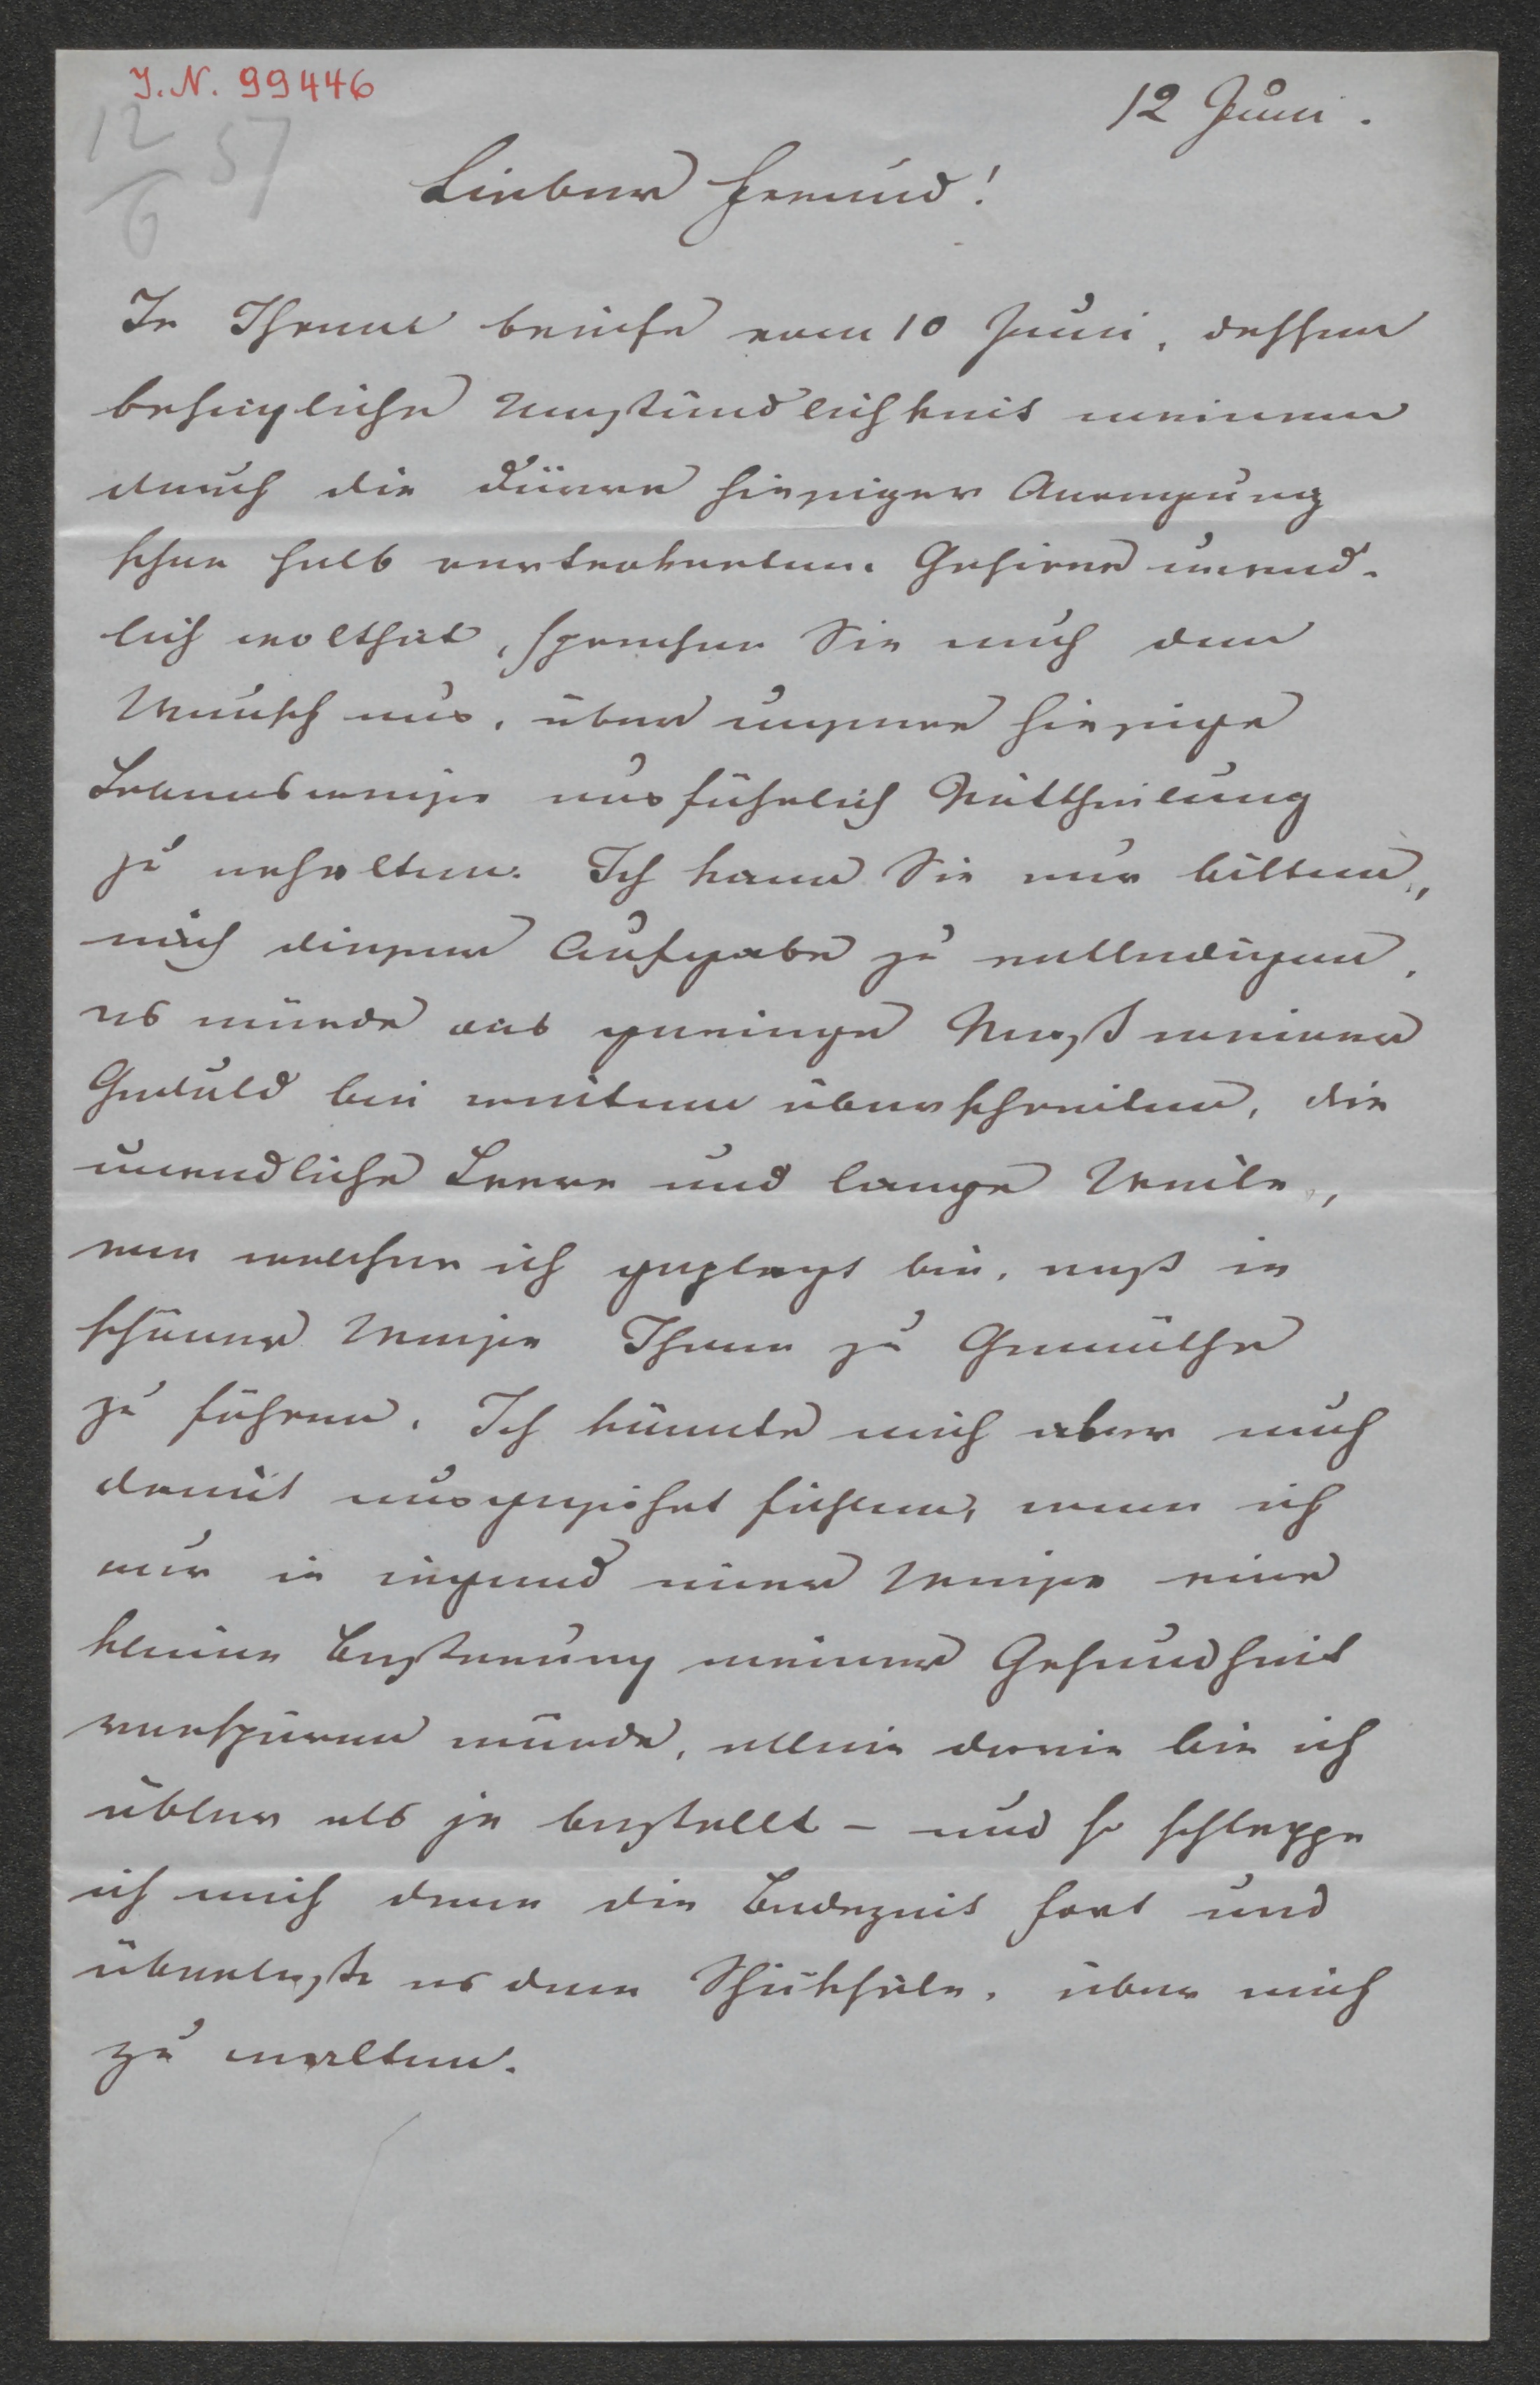 J. N. 99446
12 Juni.
12/6 57
Lieber Freund!
In Ihrem briefe vom 10 Juni, dessen
behagliche Umständlichkeit meinem
durch die Dürre hiesiger Anregung
schon halb vertrockneten Gehirne unend-
lich wolthat, sprechen Sie auch den
Wunsch aus, über unsere hiesige
Lebensweise ausführlich Mittheilung
zu erhalten. Ich kann Sie nur bitten,
mich dieser Aufgabe zu entledigen,
es würde das geringe Maß meiner
Geduld bei weitem überschreiten, die
unendliche Leere und lange Weile,
von welcher ich geplagt bin, erst in
schöner Weise Ihnen zu Gemüthe
zu führen. Ich könnte mich aber auch
damit ausgesöhnt fühlen, wenn ich
nur in irgend einer Weise eine
kleine Besserung meiner Gesundheit
verspüren würde, allein darin bin ich
übler als je bestellt – und so schleppe
ich mich denn die Badezeit fort und
überlasse es dem Schiksale, über mich
zu walten.